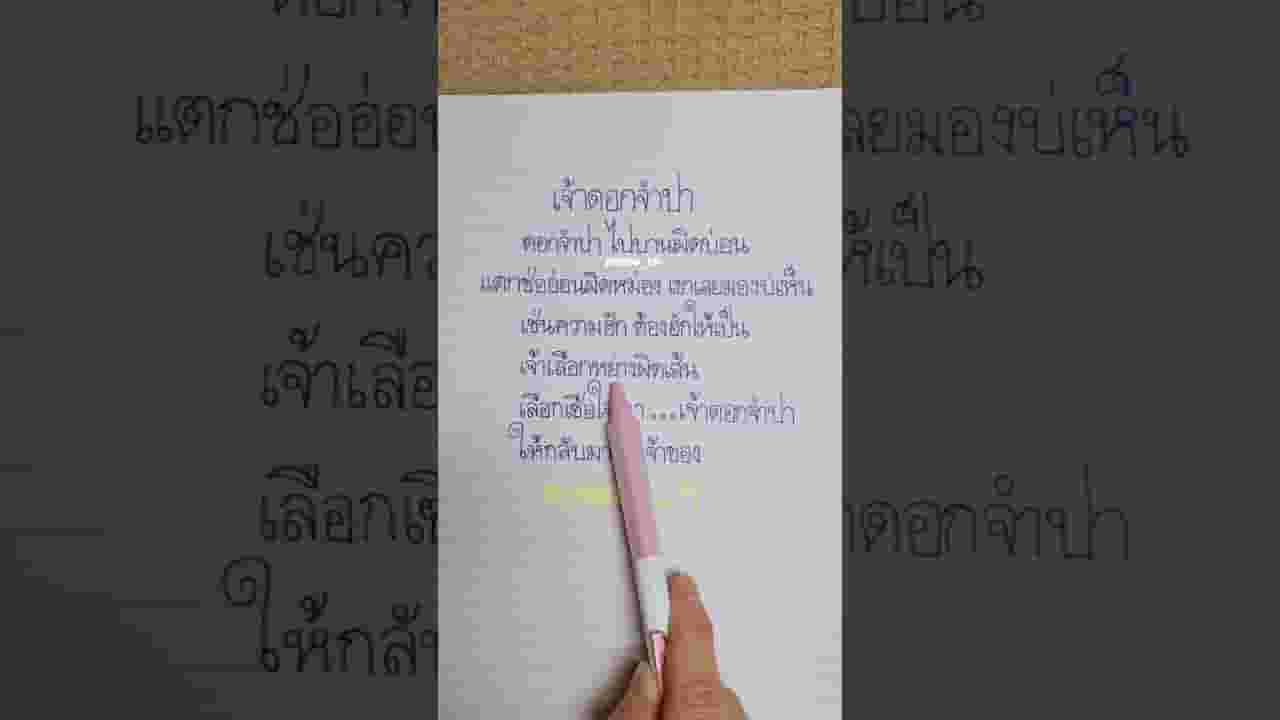 เจ้าดอกจำปา
ดอกจำปา ไปบานผิดบ่อน
แตกช่ออ่อนผิดหม่อง เขาเลยมองบ่เห็น
เช่นความฮัก ต้องฮักให้เป็น
เจ้าเลือกหย่างผิดเส้น
เลือกเชื่อ ...เจ้าดอกจำปา
ให้กลับมา เจ้าของ